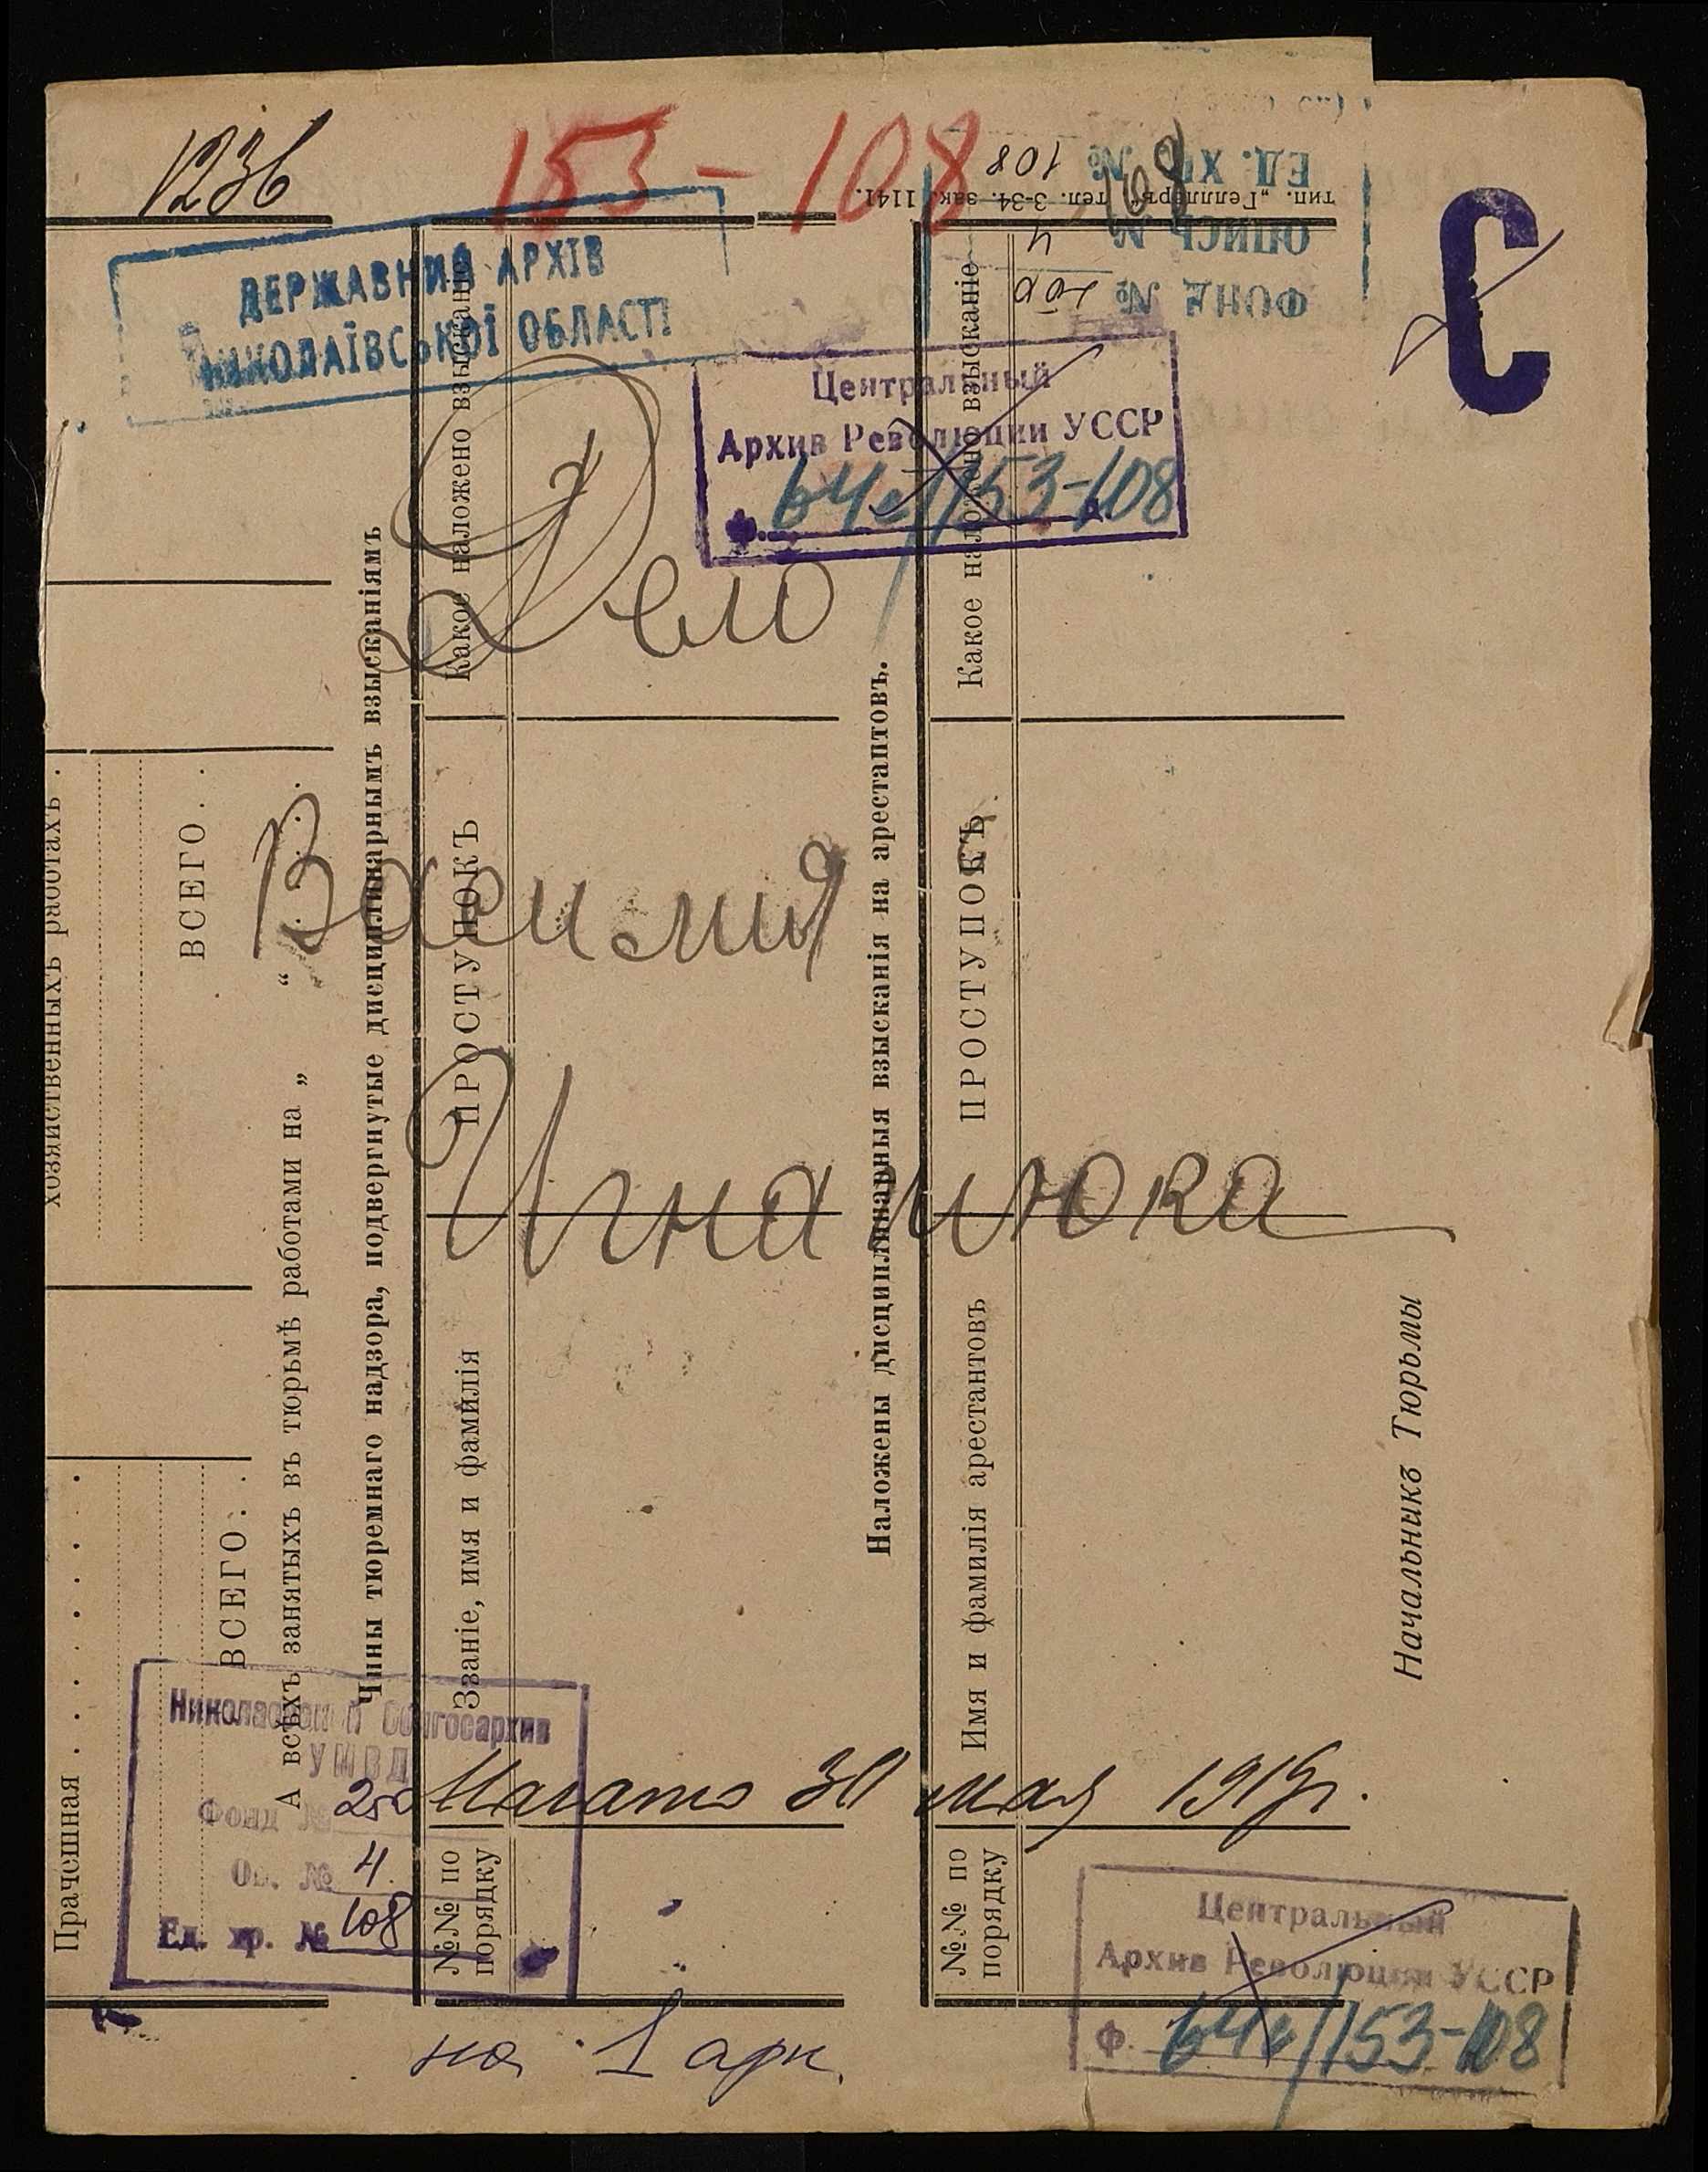 1236
153-108
ДЕРЖАВНИЙ АРХІВ
МИКОЛАЇВСЬКОЇ ОБЛАСТІ
тип. „Геллеръ“, тел. 3-34. зак. 1141.
ФОНД №
ОПИСЬ № 4
ЕД. ХР. № 108
108
С
Центральный
Архив Революции УССР
Ф. 64с/153-108
Дело
Василия
Игнатюка
Начато 30 мая 1919 г.
на 1 арк.
хозяйственныхъ работахъ .
ВСЕГО . .
Прачешная . . . . . . .
ВСЕГО: . .
А всѣхъ занятыхъ въ тюрьмѣ работами на „ “
Чины тюремнаго надзора, подвергнутые дисциплинарнымъ взысканіямъ
№№ по порядку
Званіе, имя и фамилія
ПРОСТУПОКЪ
Какое наложено взысканіе
Наложены дисциплинарныя взысканія на арестантовъ.
№№ по порядку
Имя и фамилія арестантовъ
ПРОСТУПОКЪ.
Какое наложено взысканіе
Начальникъ Тюрьмы
Николаевский Облгосархив
УМВД
Фонд № 250
Оп. № 4
Ед. хр. № 108
Центральный
Архив Революции УССР
Ф. 64с/153-108